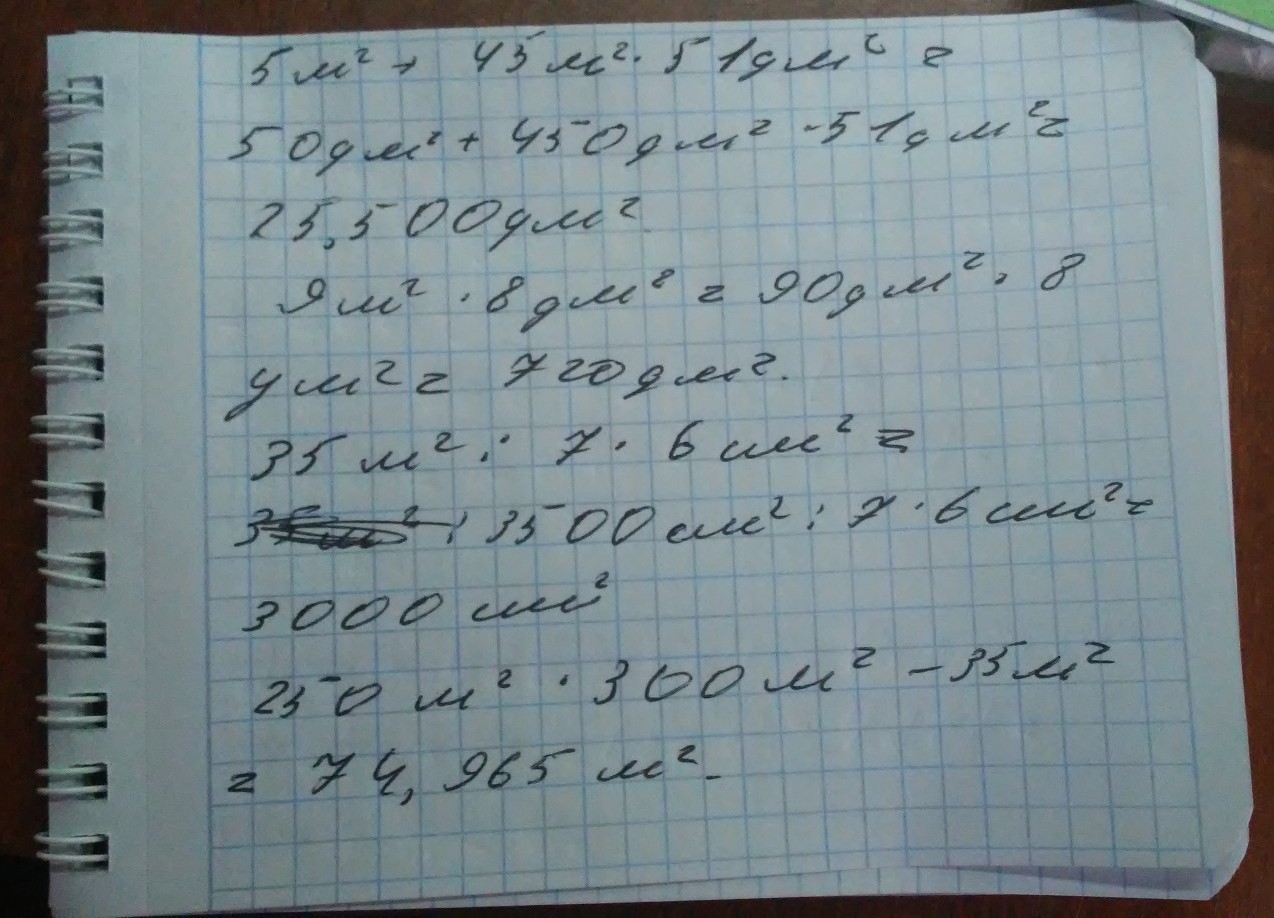 5м² + 45м² · 51дм² =
50дм² + 450дм² · 51дм² =
25,500дм²
9м² · 8дм² = 90дм² · 8
дм² = 720дм².
35м² : 7 · 6см² =
: 3500см² : 7 · 6см² =
3000см²
250м² · 300м² – 35м²
= 74,965м².